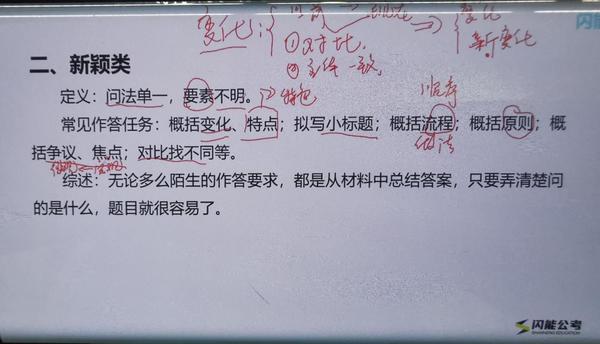 变化：
①对比
②主体一致
⇒
变化
新变化
闪能
二、新颖类
定义：问法单一，要素不明。
特色
顺序
常见作答任务：概括变化、特点；拟写小标题；概括流程；概括原则；概
做法
括争议、焦点；对比找不同等。
综述：无论多么陌生的作答要求，都是从材料中总结答案，只要弄清楚问
的是什么，题目就很容易了。
闪能公考
SHANNENG EDUCATION